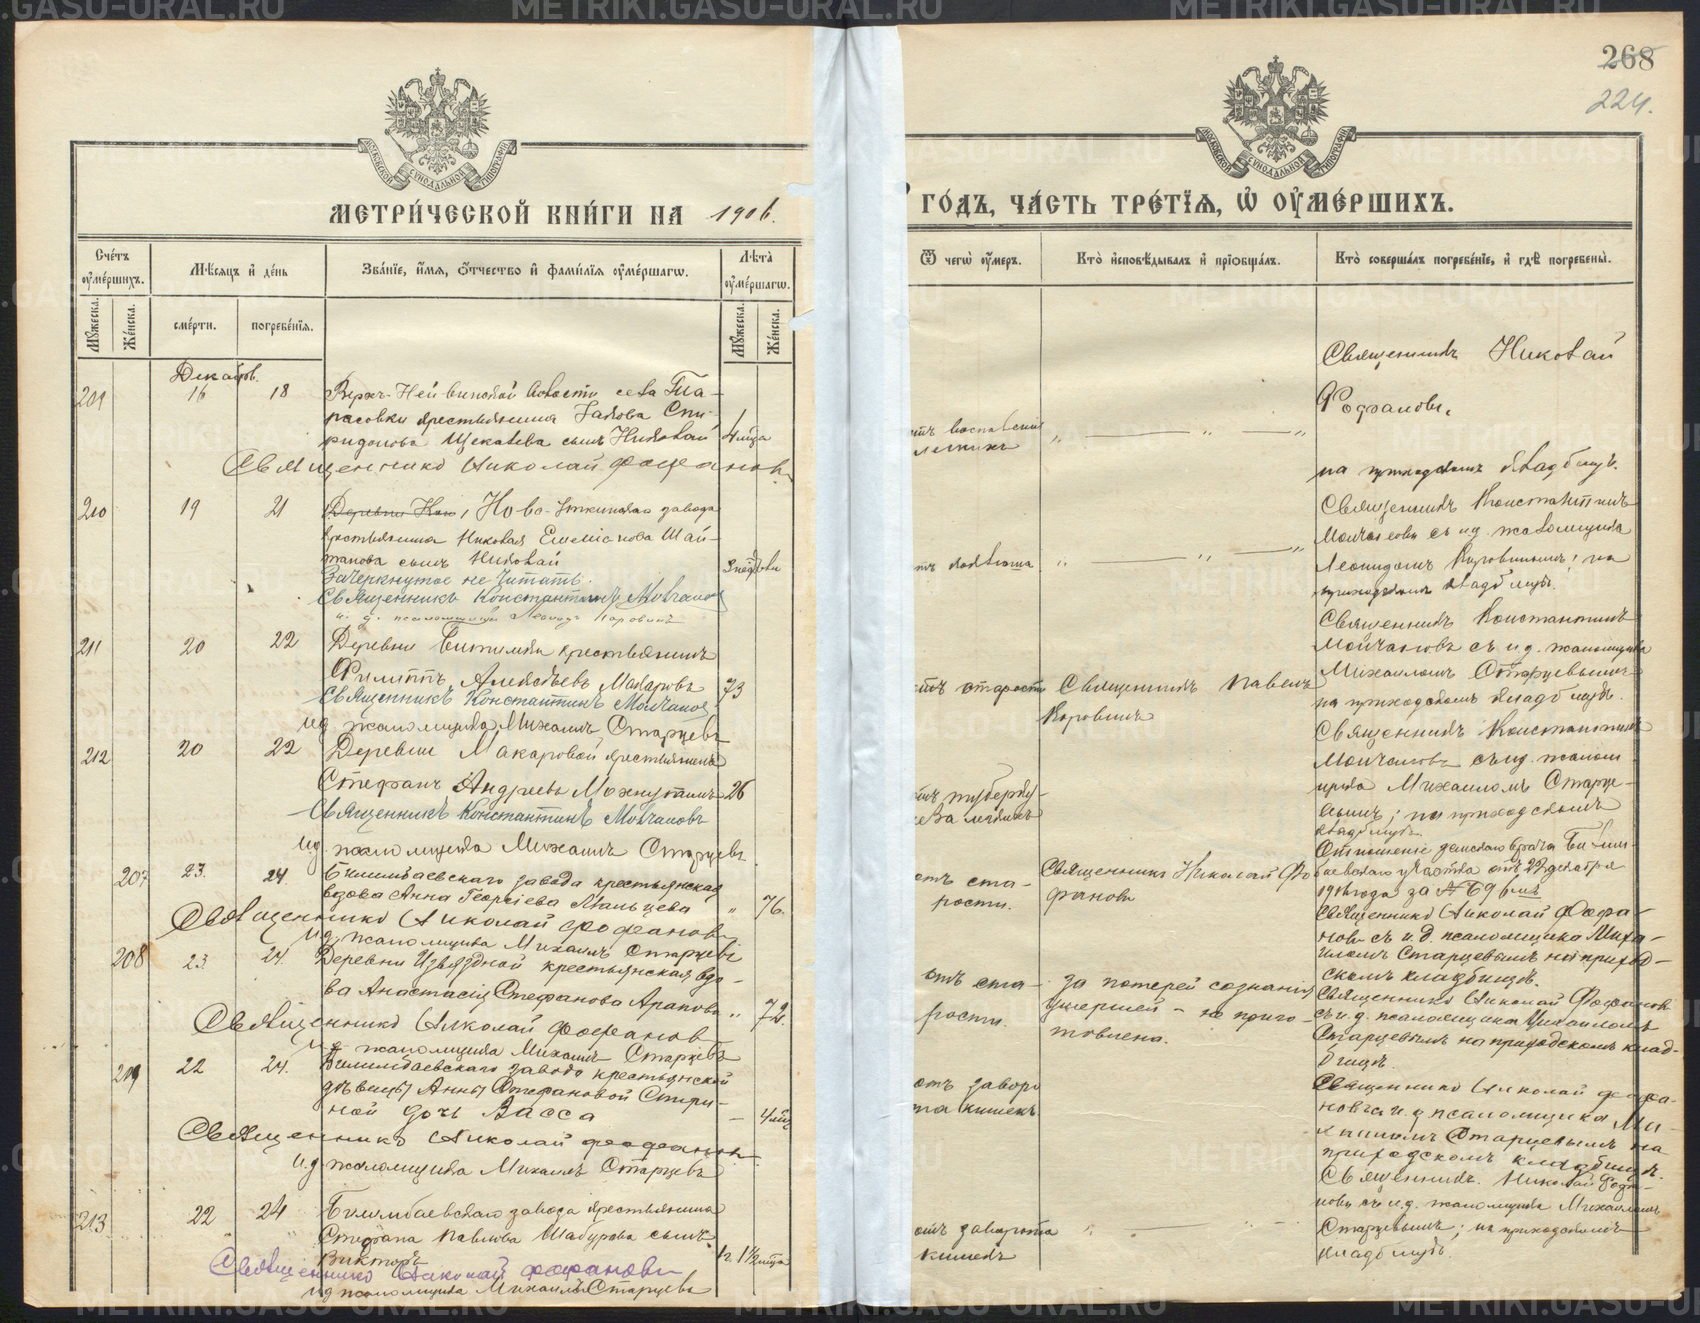 268
224.
МОСКОВСКОЙ СѴНОДАЛЬНОЙ ТИПОГРАФІИ
МОСКОВСКОЙ СѴНОДАЛЬНОЙ ТИПОГРАФІИ
МЕТРИ́ЧЕСКОЙ КНИ́ГИ НА 1906.
ГО́ДЪ, ЧА́СТЬ ТРЕ́ТЇѦ, Ѡ҆ ОУ҆МЕ́РШИХЪ.
Сче́тъ оу҆ме́ршихъ.
Мѣ́сѧцъ и҆ де́нь
Зва́нїе, и҆́мѧ, ѻ҆́тчество и҆ фами́лїѧ оу҆ме́ршагѡ.
Лѣ́та оу҆ме́ршагѡ.
Ѿ чегѡ̀ оу҆́меръ.
Кто̀ и҆сповѣ́дывалъ и҆ прїѡбща́лъ.
Кто̀ соверша́лъ погребе́нїе, и҆ гдѣ̀ погребены̀.
Мꙋ́жеска.
Же́нска.
сме́рти.
погребе́нїѧ.
Мꙋ́жеска.
Же́нска.
Декабрь.
209 16 18 Верхъ-Нейвинской волости села Та-
расовки крестьянина Іакова Спи-
ридонова Щекалева сынъ Николай
Священникъ Николай Фофановъ
воспаленія
легкихъ
Священникъ Николай
Фофановъ,
на приходскомъ кладбищѣ.
210 19 21 Ново-Уткинскаго завода
крестьянина Николая
сынъ Николай
Зачеркнутое не читать.
Священникъ Константинъ Молчановъ
и. д. псаломщика Леонидъ Коровинъ
3 недѣли
Священникъ Константинъ
Молчановъ съ и.д. псаломщика
Леонидомъ Коровинымъ; на
приходскомъ кладбищѣ.
211 20 22 Деревни Битимки крестьянинъ
Филиппъ Алексѣевъ Макаровъ 73
Священникъ Константинъ Молчановъ
и.д. псаломщика Михаилъ Старцевъ
отъ старости
Священникъ Павелъ
Коровинъ
Священникъ Константинъ
Молчановъ съ и.д. псаломщика
Михаиломъ Старцевымъ
на приходскомъ кладбищѣ.
212 20 22 Деревни Макаровой крестьянинъ
Стефанъ Андреевъ Махнуткинъ 26
Священникъ Константинъ Молчановъ
и.д. псаломщика Михаилъ Старцевъ
отъ туберку-
леза легкихъ
Священникъ Константинъ
Молчановъ съ и.д. псалом-
щика Михаиломъ Старце-
вымъ; на приходскомъ
кладбищѣ.
207 23. 24. Билимбаевскаго завода крестьянская
вдова Анна Георгіева Мальцева " 76.
Священникъ Николай Фофановъ
и.д. псаломщика Михаилъ Старцевъ
отъ ста-
рости.
Священникъ Николай Фо-
фановъ
Отношеніе земскаго врача Билим-
баевскаго участка отъ 22 декабря
1906 года за № 69
Священникъ Николай Фофа-
новъ съ и.д. псаломщика Миха-
иломъ Старцевымъ на приход-
скомъ кладбищѣ.
208 23. 24. Деревни Извѣздной крестьянская вдо-
ва Анастасія Стефанова Арапова " 72.
Священникъ Николай Фофановъ
и.д. псаломщика Михаилъ Старцевъ
отъ ста-
рости.
за потерей сознанія
умершей - не приго-
товлена.
Священникъ Николай Фофановъ
съ и.д. псаломщика Михаиломъ
Старцевымъ на приходскомъ клад-
бищѣ.
209 22 24. Билимбаевскаго завода крестьянской
дѣвицы Анны Стефановой
дочь Васса - 4 мѣс
Священникъ Николай Фофановъ.
и.д. псаломщика Михаилъ Старцевъ
отъ заворо
та кишекъ
Священникъ Николай Фофа-
новъ съ и.д. псаломщика Ми-
хаиломъ Старцевымъ на
приходскомъ кладбищѣ.
213 22 24 Билимбаевскаго завода крестьянина
Стефана Павлова Шабурова сынъ
Викторъ 1г. 1½ мѣсца
Священникъ Николай Фофановъ
и.д. псаломщика Михаилъ Старцевъ
отъ заворота
кишекъ
Священникъ Николай Фофа-
новъ съ и.д. псаломщика Михаиломъ
Старцевымъ; на приходскомъ
кладбищѣ.
METRIKI.GASU-URAL.RU